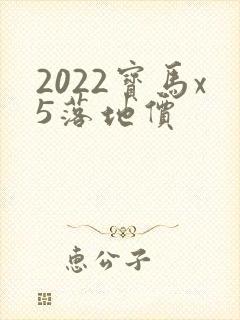 2022寶馬x
5落地價
惠公子